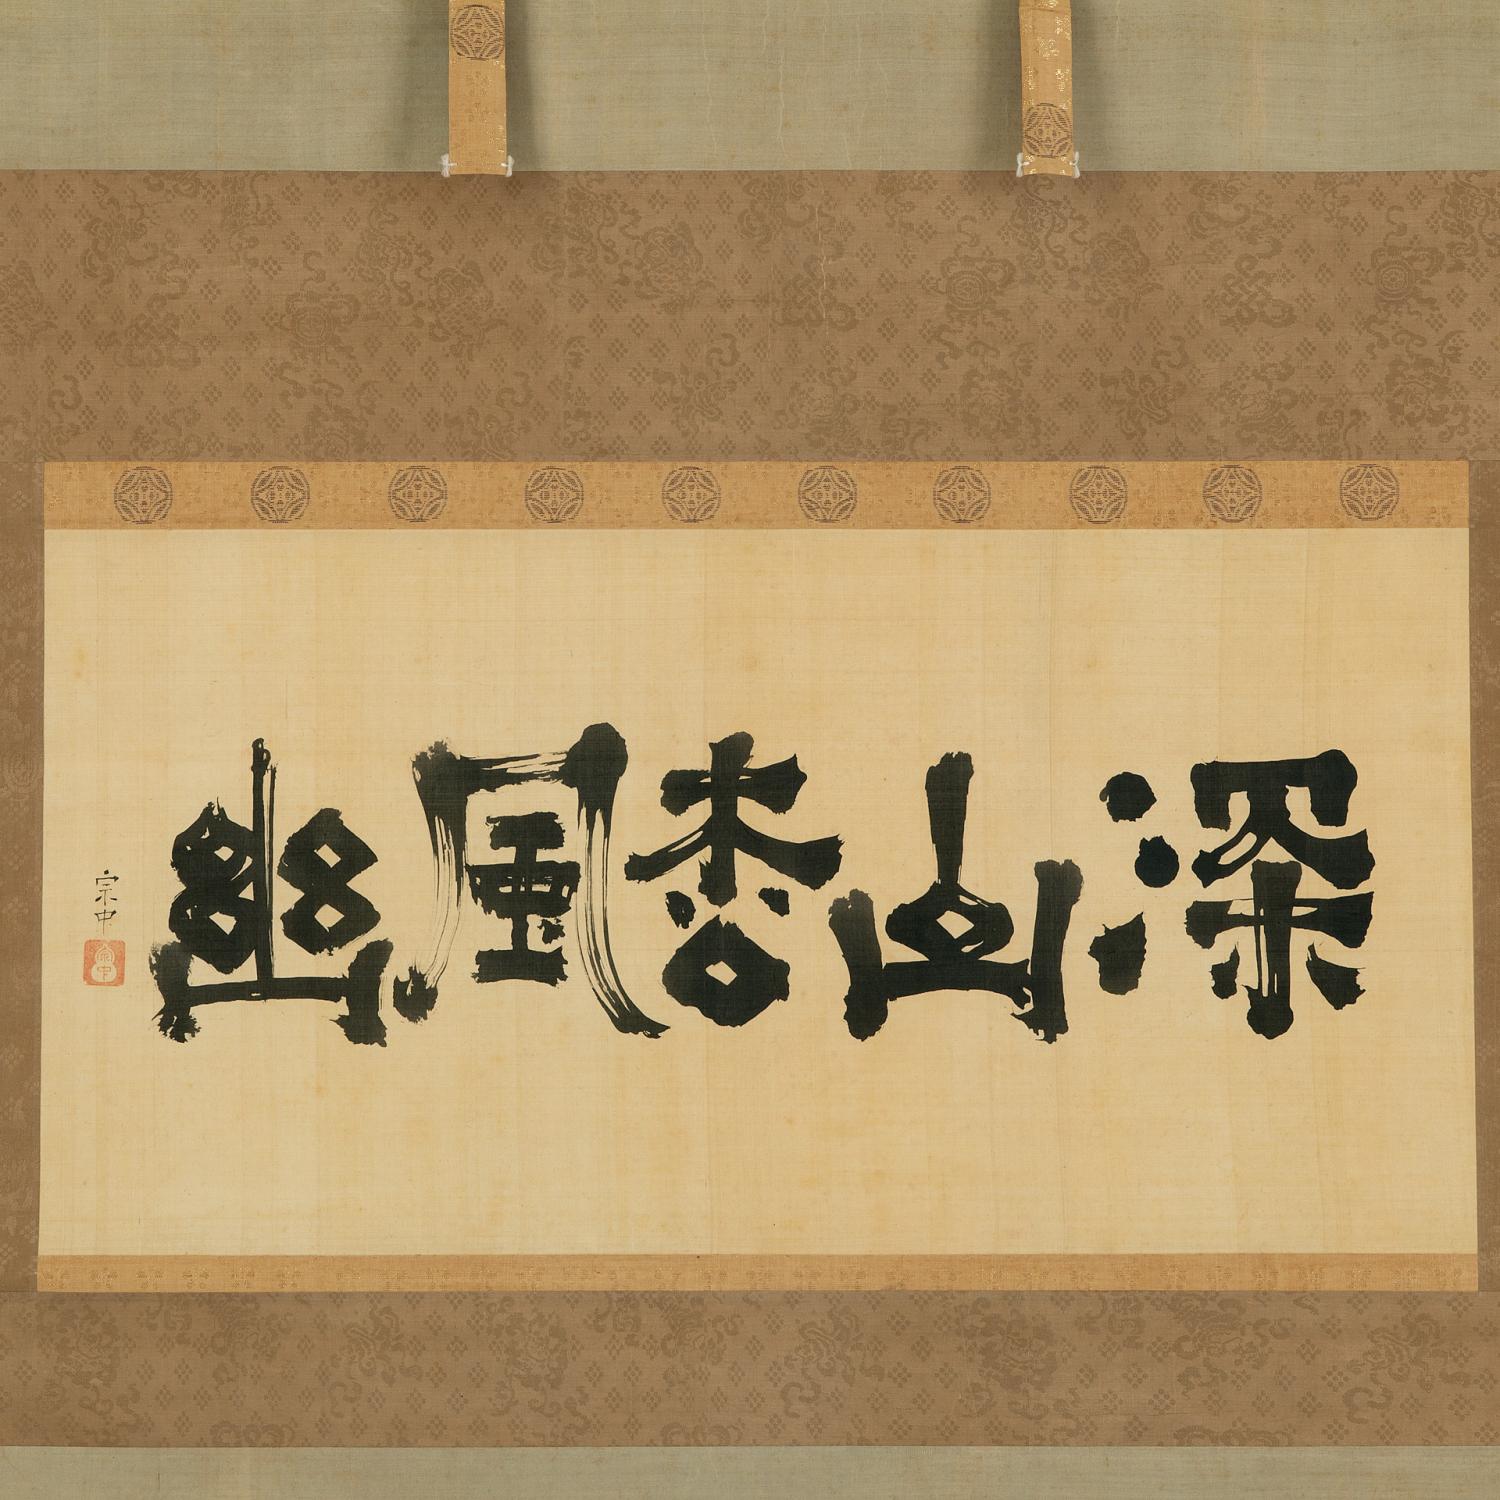 深山枩風幽
宗中
宗中